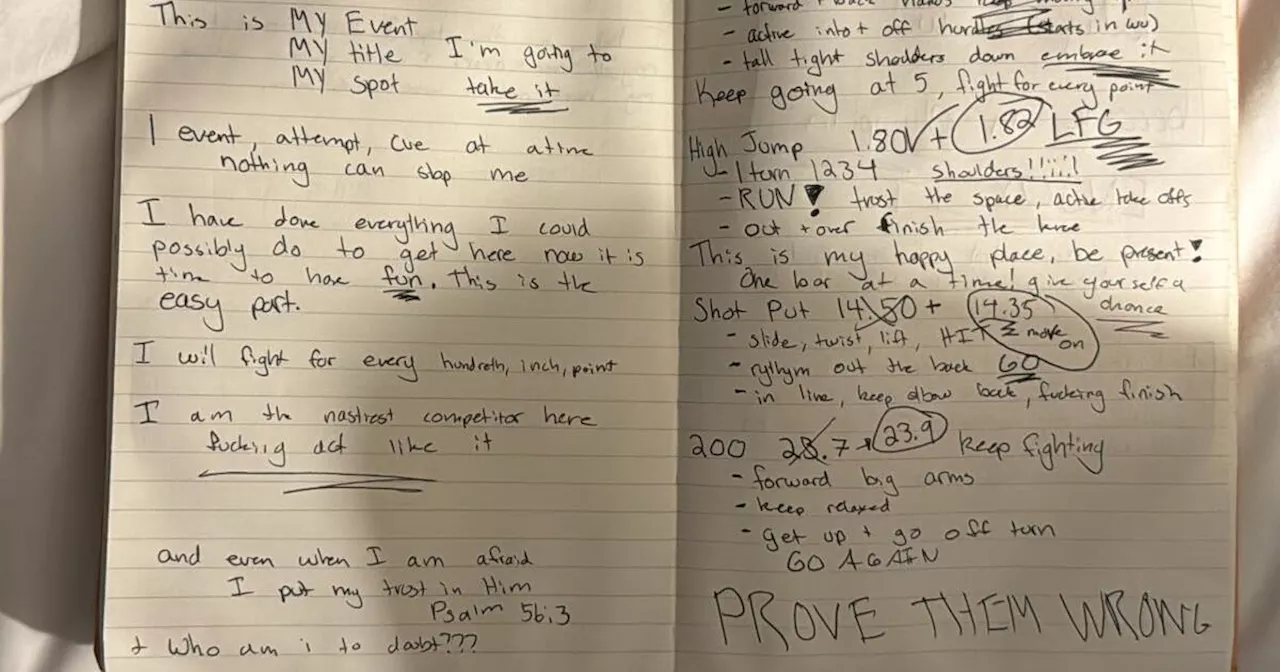 This is MY Event
MY title I'm going to
MY spot take it
1 event, attempt, cue at a time
nothing can stop me
I have done everything I could
possibly do to get here now it is
time to have fun. This is the
easy part.
I will fight for every hundreth, inch, point
I am the nastiest competitor here
fucking act like it
and even when I am afraid
I put my trust in Him
Psalm 56:3
+ Who am i to doubt???
- forward + back
- active into + off hurdles (starts in wu)
- tall tight shoulders down embrace it
Keep going at 5, fight for every point
High Jump 1.80 + 1.82 LFG
- 1 turn 1234 shoulders!!¡¡!
- RUN! trust the space, active take offs
- out + over finish the knee
This is my happy place, be present!
One bar at a time! give yourself a
chance
Shot Put 14.50 + 14.35
- slide, twist, lift, HIT & move
on
- rythym out the back GO
- in line, keep elbow back, fucking finish
200 23.7 + 23.9 keep fighting
- forward big arms
- keep relaxed
- get up + go off turn
GO AGAIN
PROVE THEM WRONG